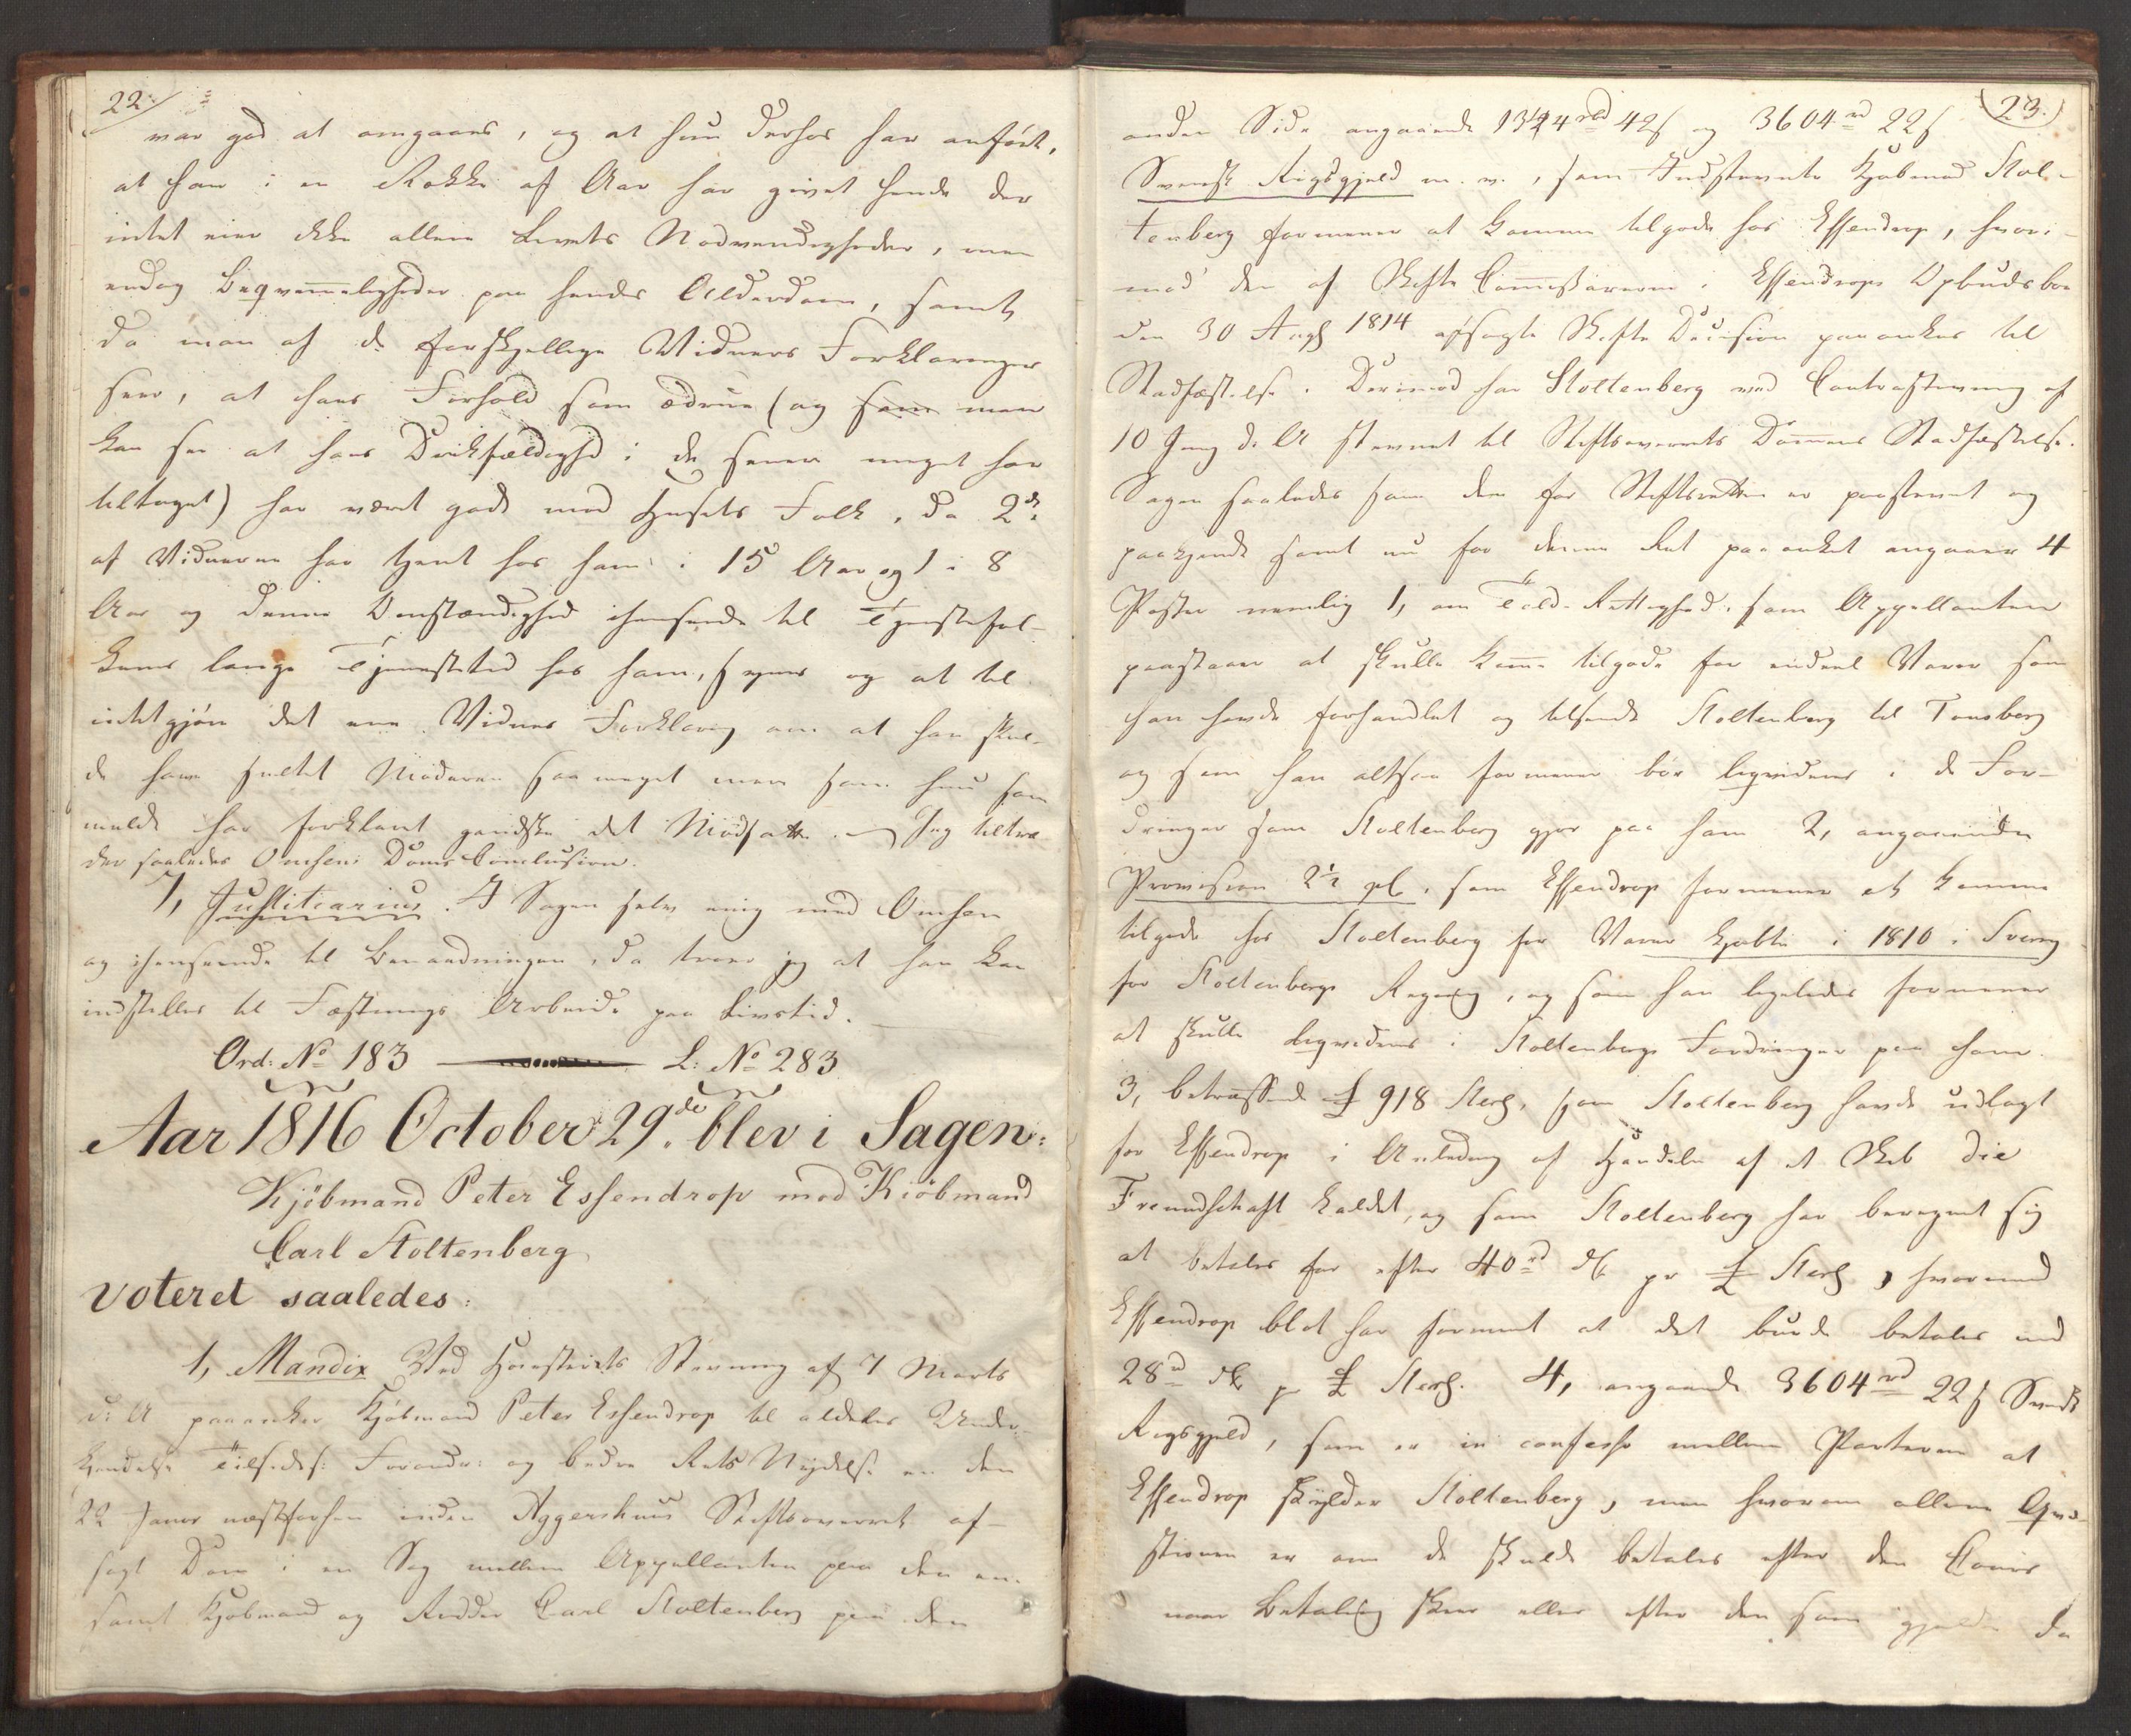 22/
var god at omgaaes, og at hun derhos har anført,
at han i en Række af Aar har givet hende der
intet eier ikke allene Livets Nødvendigheder, men
endog Beqvemmeligheder paa hendes Alderdom, samt
da man af de forskjellige Vidners Forklaringer
seer, at hans Forhold som ædrue (og som man
kan see at hans Drikfældighd i de senere meget har
tiltaget) har været godt mod Husets Folk, da 2de
af Vidnerne har tjent hos ham i 15 Aar og 1 i 8
Aar og denne Omstændighed ihenseende til Tjenestefol-
kenes lange Tjenestetid hos ham, synes og at til
intetgjøre det ene Vidnes Forklaring om at han skul-
de have sultet Moderen saa meget mere som hun som
meldt har forklaret gandske det Modsatte. Jeg tiltræ-
der saaledes Omsens Doms Conclusion.
7, Justitiarius. I Sagen selv enig med Omsen
og ihenseende til Benaadningen, da troer jeg at han kan
indstilles til Fæstnings Arbeide paa Livstid.
Ord: No 183 L: No 283
Aar 1816 October 29de blev i Sagen:
Kjöbmand Peter Essendrop mod Kiöbmand
Carl Stoltenberg
voteret saaledes:
1, Mandix Ved Høiesterets Stevning af 7 Marts
d: A paaanker Kjøbmand Peter Essendrop til aldeles Under-
kjendelse Tilsides: Forandr: og bedre Rets Nydelse en den
22 Januar næstforhen inden Aggershuus Stiftsoverret af-
sagt Dom i en Sag mellem Appellanten paa den ene
samt Kjøbmand og Ridder Carl Stoltenberg paa den
23.
anden Side angaaende 1344 rbd 42 s og 3604 rd 22 s
Svensk Rigsgjeld m. v., som Indstevnte Kjøbmand Stol-
tenberg formener at komme tilgode hos Essendrop, hvori-
mod den af Skifte Commissairerne i Essendrops Opbudsboe
den 30 Aug 1814 afsagte Skifte Decision paaankes til
Stadfæstelse. Derimod har Stoltenberg ved Contrastevning af
10 Juny d. A stevnet til Stiftsoverrets Dommens Stadfæstelse.
Sagen saaledes som den for Stiftsretten er paastevnet og
paakjendt samt nu for denne Ret paaanket angaaer 4
Poster nemlig 1, om Told-Rettighed, som Appellanten
paastaaer at skulle komme tilgode for endeel Varer som
han havde forhandlet og tilsendt Stoltenberg til Tønsberg
og som han altsaa formener bør liqvideres i de For-
dringer som Stoltenberg gjør paa ham 2, angaaende
Provision 2½ pC, som Essendrop formener at komme
tilgode hos Stoltenberg for Varer kjøbte i 1810 i Sverrig
for Stoltenbergs Regning, og som han ligeledes formener
at skulle liqvideres i Stoltenbergs Fordringer paa ham.
3, betræffende £ 918 Sterl, som Stoltenberg havde udlagt
for Essendrop i Anledning af Handelen af et Skib die
Freundschaft kaldet, og som Stoltenberg har beregnet sig
at betales for efter 40 rd DC pr £ Sterl, hvorimod
Essendrop blot har formeent at det burde betales med
28 rd DC pr £ Sterl. 4, angaaende 3604 rd 22 s Svensk
Rigsgjeld, som er in confesso mellem Parterne at
Essendrop skylder Stoltenberg, men hvorom allene Qvæ-
stionen er om de skulde betales efter den Cours
naar Betaling skeer eller efter den som gjældte da